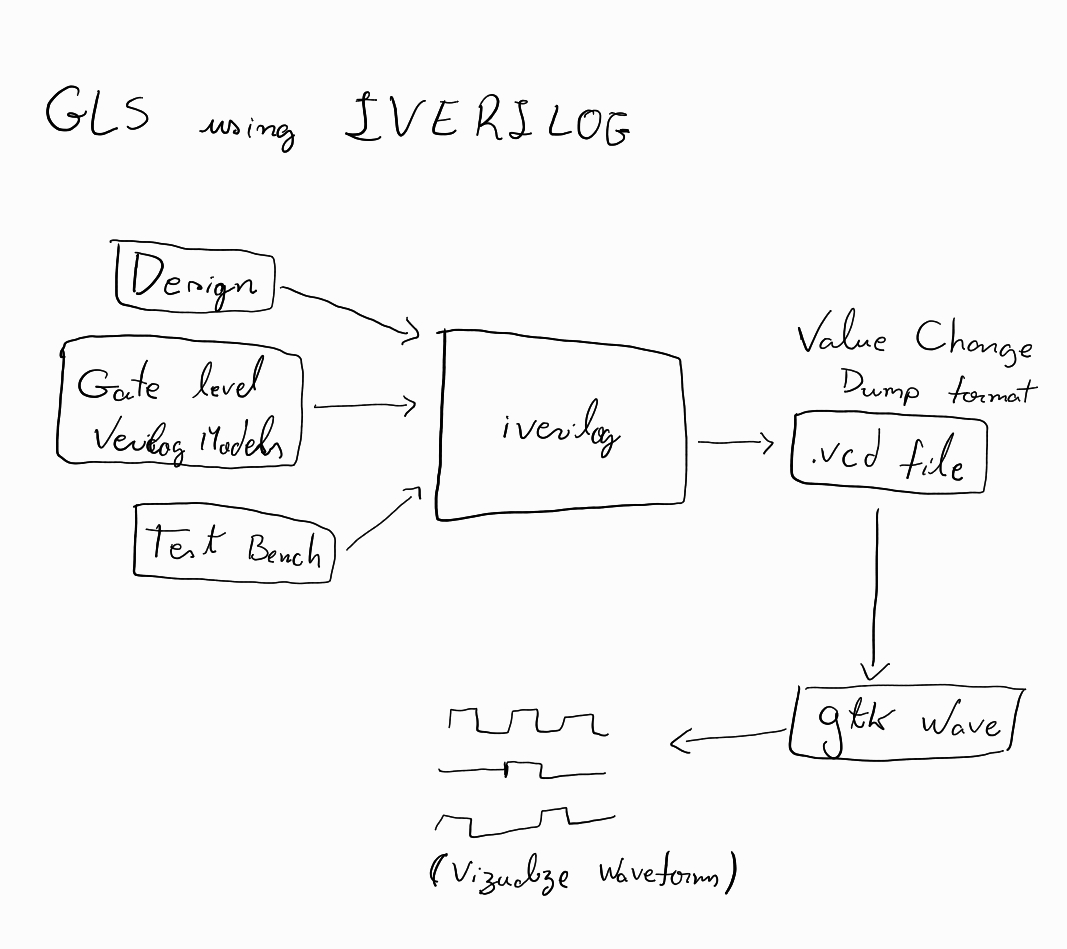 GLS using IVERILOG
Design
Gate level
Verilog Models
Test Bench
iverilog
Value Change
Dump format
.vcd file
gtk Wave
(Vizualize Waveforms)